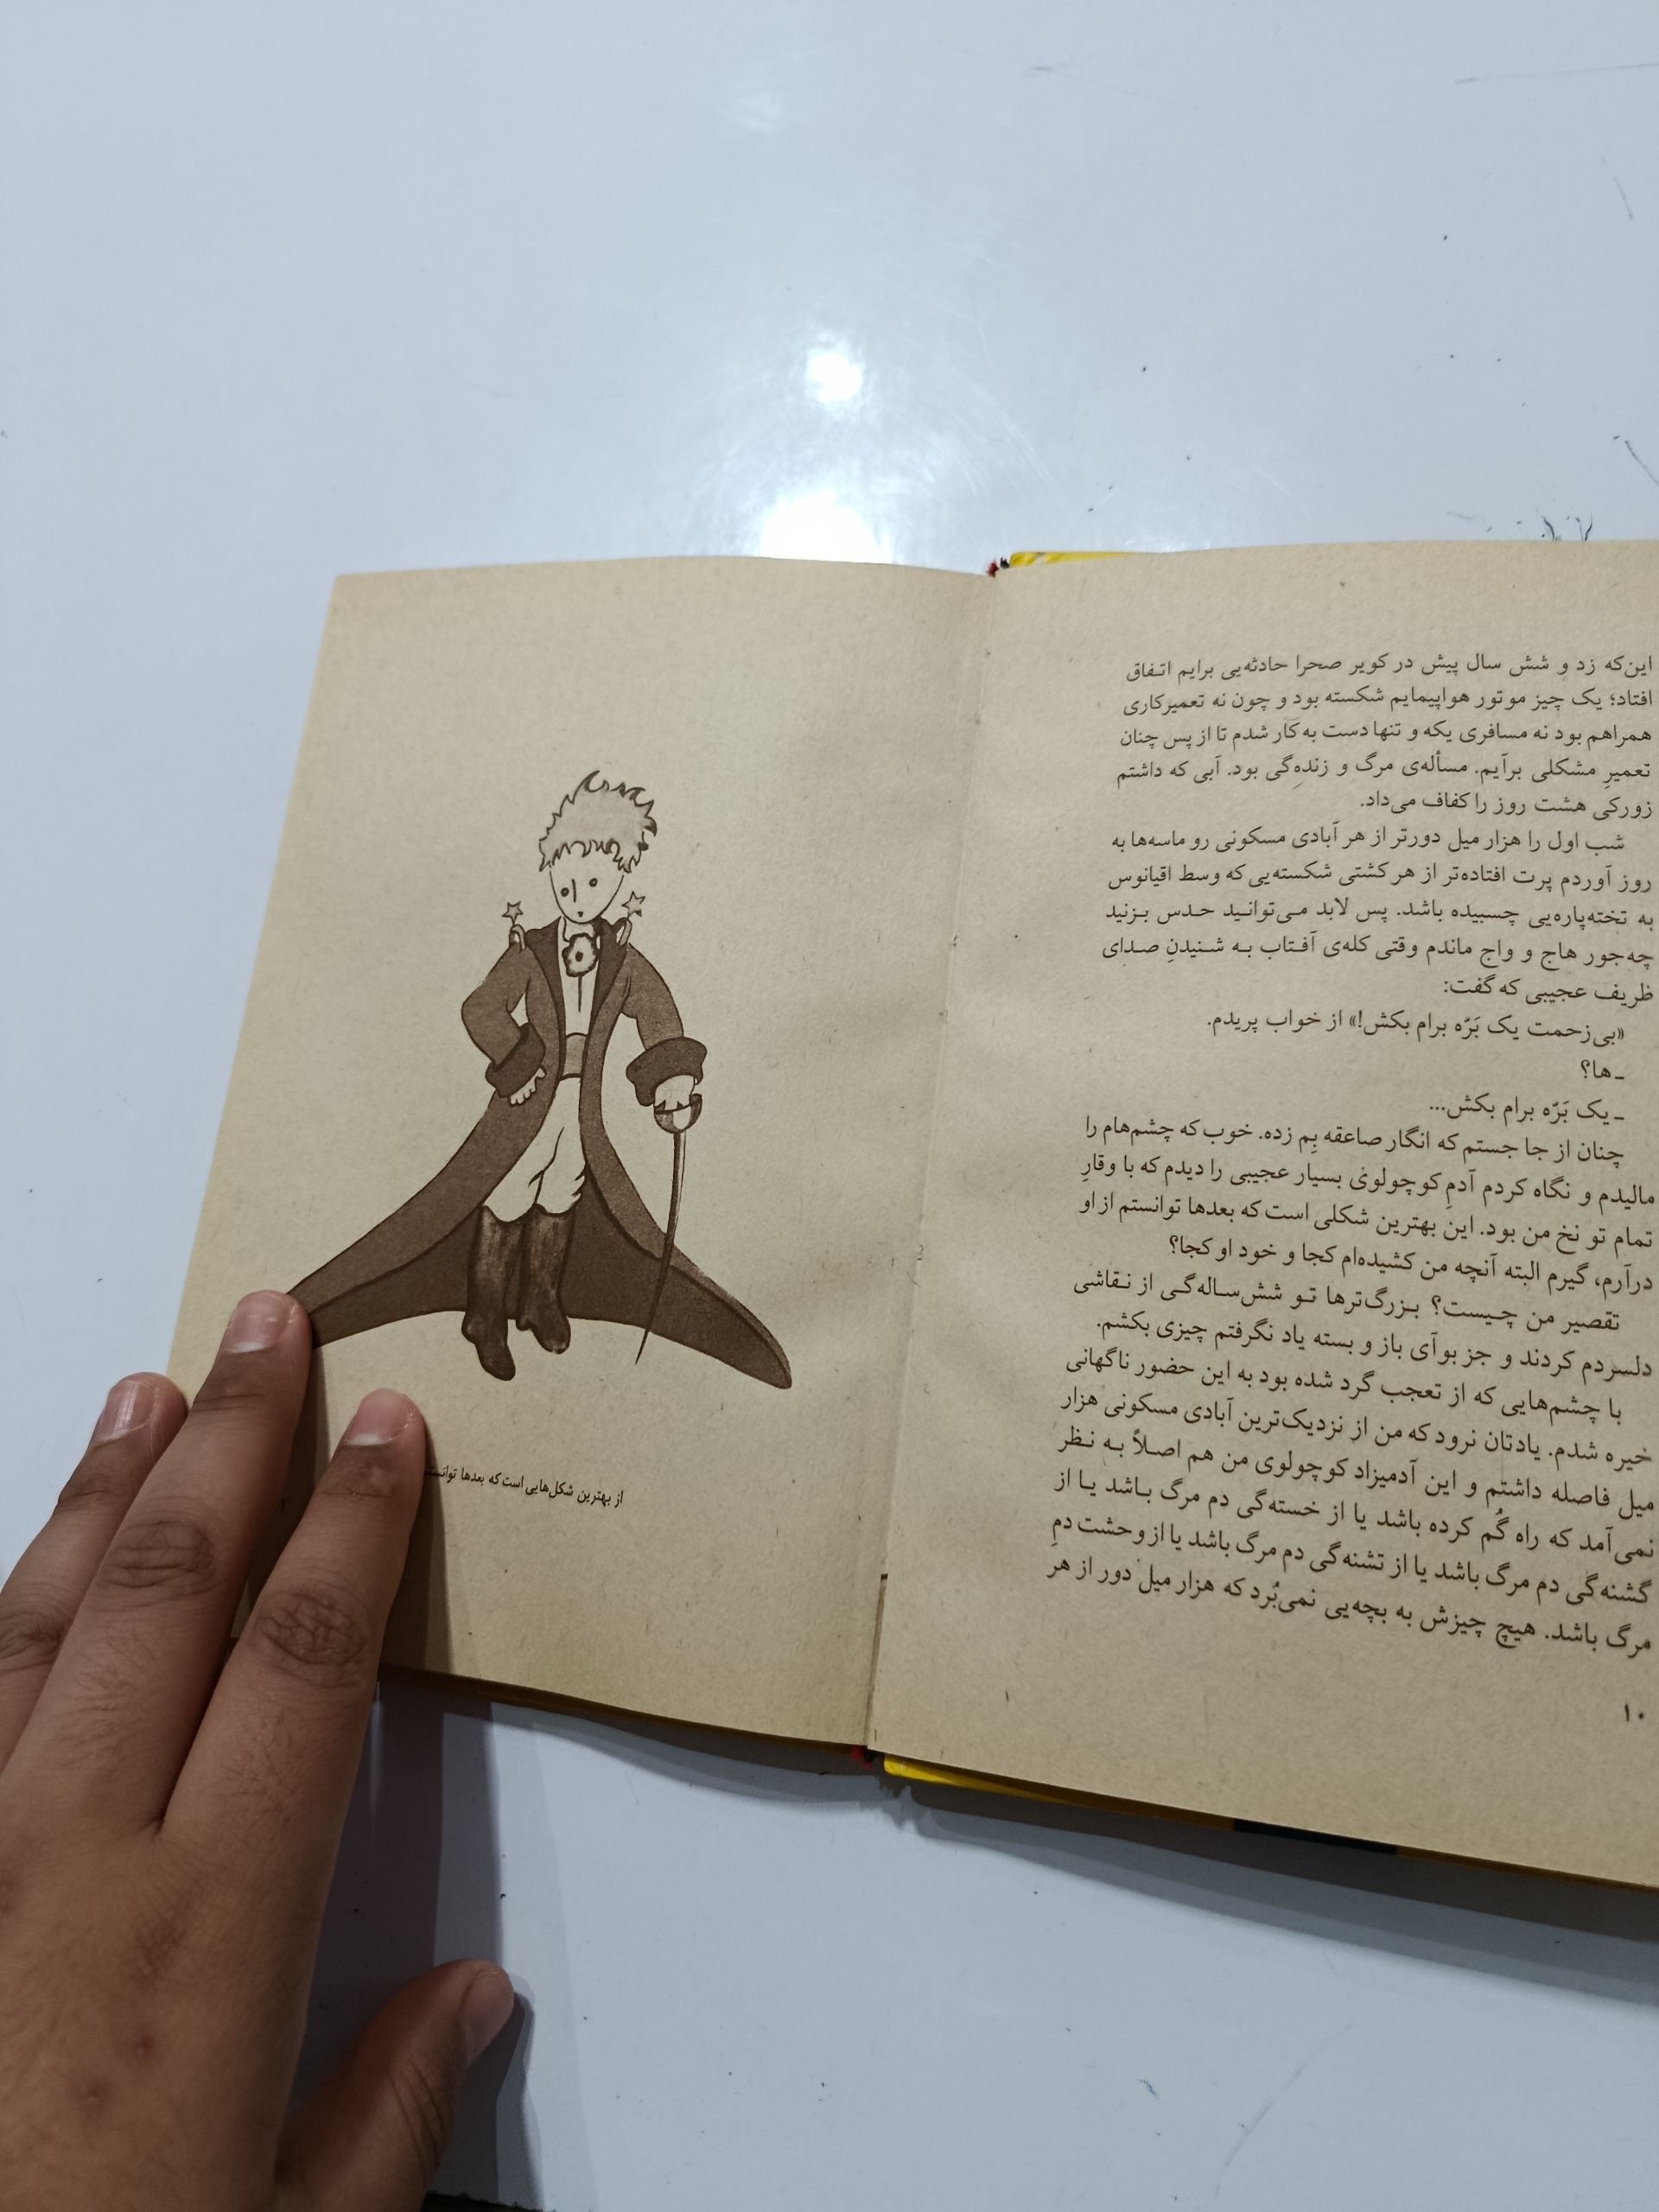 این‌که زد و شش سال پیش در کویر صحرا حادثه‌یی برایم اتـفاق
افتاد؛ یک چیز موتور هواپیمایم شکسته بود و چون نه تعمیرکاری
همراهم بود نه مسافری یکه و تنها دست به‌کار شدم تا از پس چنان
تعمیرِ مشکلی برآیم. مسأله‌ی مرگ و زنده‌گی بود. آبی که داشتم
زورکی هشت روز را کفاف می‌داد.
شب اول را هزار میل دورتر از هر آبادی مسکونی رو ماسه‌ها به
روز آوردم پرت افتاده‌تر از هر کشتی شکسته‌یی که وسط اقیانوس
به تخته‌پاره‌یی چسبیده باشد. پس لابد مـی‌توانـید حـدس بـزنید
چه‌جور هاج و واج ماندم وقتی کله‌ی آفـتاب بـه شـنیدنِ صـدای
ظریف عجیبی که گفت:
«بی‌زحمت یک بَرّه برام بکش!» از خواب پریدم.
ـ ها؟
ـ یک بَرّه برام بکش...
چنان از جا جستم که انگار صاعقه بِم زده. خوب که چشم‌هام را
مالیدم و نگاه کردم آدمِ کوچولویِ بسیار عجیبی را دیدم که با وقارِ
تمام تو نخ من بود. این بهترین شکلی است که بعدها توانستم از او
درآرم، گیرم البته آنچه من کشیده‌ام کجا و خود او کجا؟
تقصیر من چـیست؟ بـزرگ‌ترها تـو شش‌سـاله‌گـی از نـقاشی
دلسردم کردند و جز بوآی باز و بسته یاد نگرفتم چیزی بکشم.
با چشم‌هایی که از تعجب گرد شده بود به این حضور ناگهانی
خیره شدم. یادتان نرود که من از نزدیک‌ترین آبادی مسکونی هزار
میل فاصله داشتم و این آدمیزاد کوچولوی من هم اصـلاً بـه نـظر
نمی‌آمد که راه گُم کرده باشد یا از خسته‌گی دم مرگ بـاشد یـا از
گشنه‌گی دم مرگ باشد یا از تشنه‌گی دم مرگ باشد یا از وحشت دمِ
مرگ باشد. هیچ چیزش به بچه‌یی نمی‌بُرد که هزار میل دور از هر
۱۰
از بهترین شکل‌هایی است که بعدها